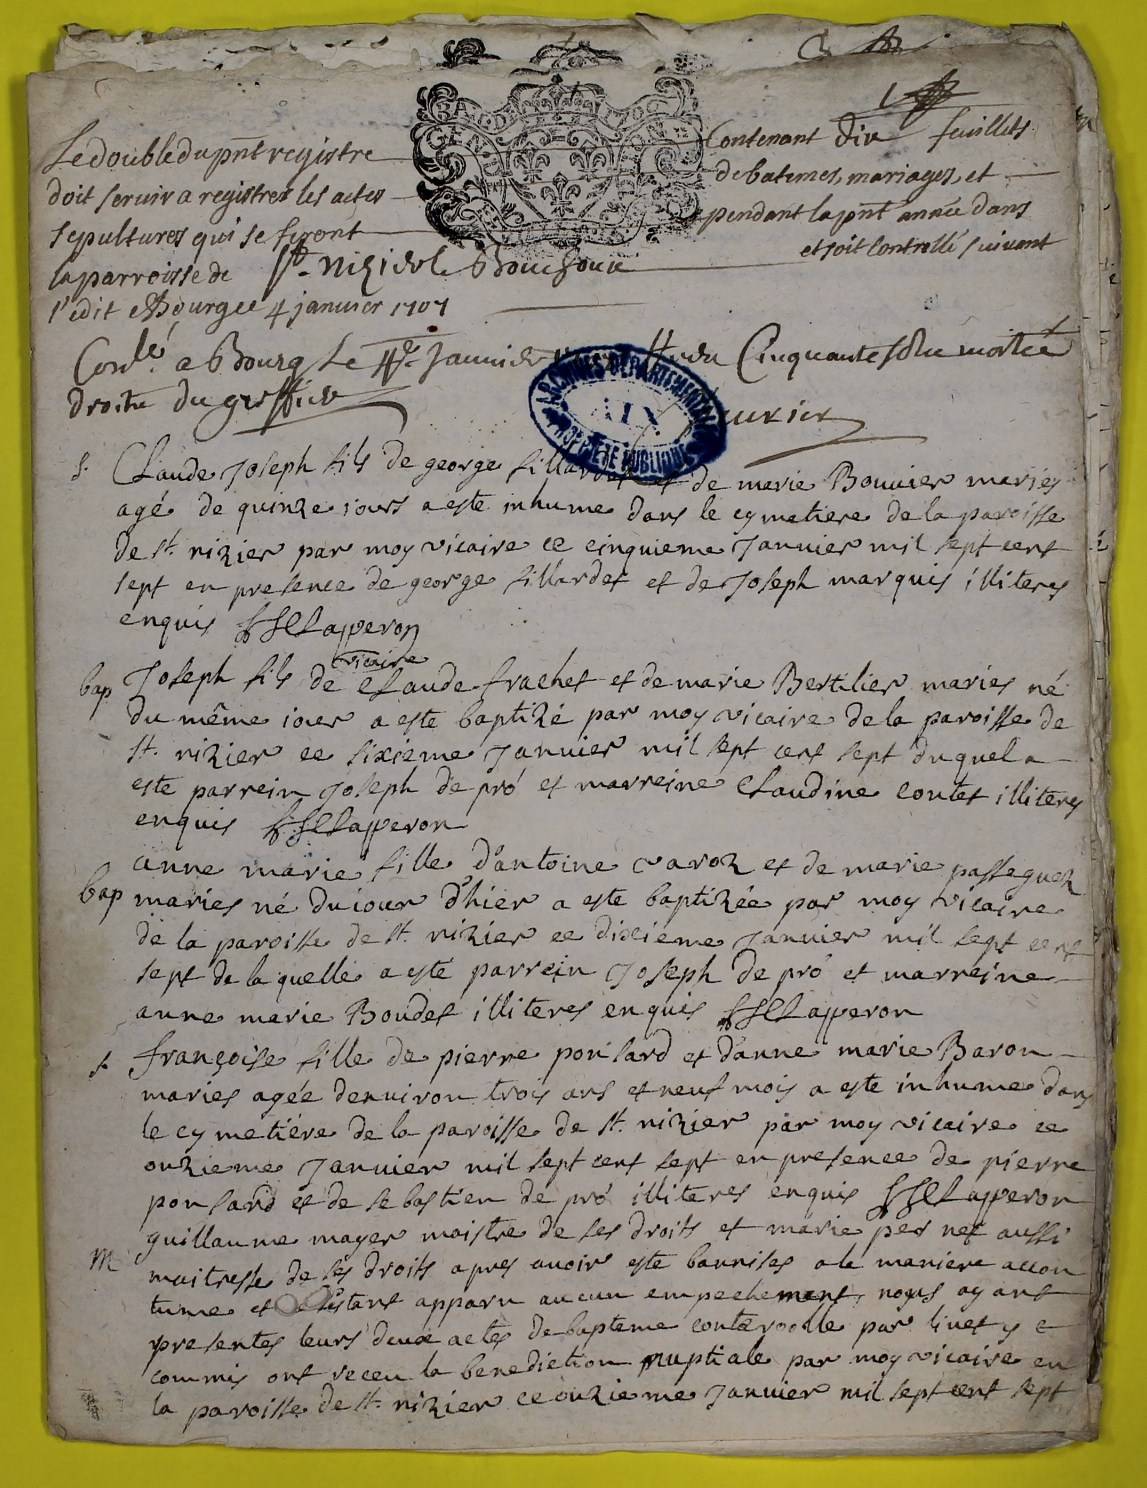 Le double du pnt registre Contenant dix feuillets
doit servir a registrer les actes de batemes, mariages, et
sepultures qui se feront pendant la pnt année dans
la parroisse de St. nizier le Bouchoux et soit controllé suivant
l'edit a Bourg ce 4 janvier 1707
Conlé. a Bourg Le Janvier Cinquante sols moitié
droits du greffier
ARCHIVES DÉPARTEMENTALES
AIN
PROPRIÉTÉ PUBLIQUE
s. Claude Joseph fils de george fillardet et de marie Bouvier mariés
agé de quinze iours a este inhume dans le cymetiere de la paroisse
de st. nizier par moy vicaire ce cinquieme Janvier mil sept cent
sept en presence de george fillardet et de Joseph marquis illiteres
enquis Claperon
vicaire
bap Joseph fils de Claude frachet et de marie Bertilier mariés né
du même iour a este baptizé par moy vicaire de la paroisse de
st. nizier ce sixieme Janvier mil sept cent sept duquel a
este parrein Joseph de pró et marreine Claudine contet illiteres
enquis Claperon
bap anne marie fille d'antoine varoz et de marie
mariés né du iour d'hier a este baptizée par moy vicaire
de la paroisse de st. nizier ce dixieme Janvier mil sept cent
sept de la quelle a este parrein Joseph de pró et marreine
anne marie Boudet illiteres enquis Claperon
s. françoise fille de pierre ponsard et d'anne marie Baron
mariés agée denviron trois ans et neuf mois a este inhume dans
le cymetiére de la paroisse de st. nizier par moy vicaire ce
onzieme Janvier mil sept cent sept en presence de pierre
ponsard et de sebastien de pró illiteres enquis Claperon
m guillaume mayer maistre de ses droits et marie aussi
maitresse de ses droits apres avoir este bannises a la maniere accou
tume et s'estant apparu aucun empechement, nous ayant
presentes leurs deux actes de bapteme conteroolle par livet y c
commis ont receu la benediction nuptiale par moy vicaire en
la paroisse de st. nizier ce onzieme Janvier mil sept cent sept